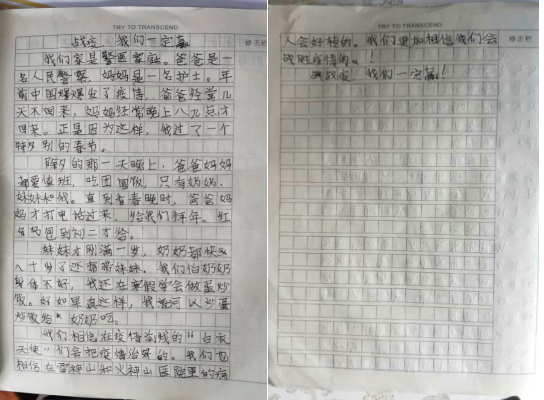 TRY TO TRANSCEND
修正栏
战疫 我们一定赢
我们家是警医家庭。爸爸是一
名人民警察，妈妈是一名护士。年
前中国爆发了疫情，爸爸经常几
天不回来，妈妈经常晚上八九点才
回来。正是因为这样，我过了一个
特别的春节。
除夕的那一天晚上，爸爸妈妈
都要值班，吃团圆饭，只有奶奶、
妹妹和我。直到看春晚时，爸爸妈
妈才打电话过来，给我们拜年。红
包到初二才给。
妹妹才刚满一岁，奶奶都快
八十岁了还带妹妹。我们怕奶奶
身体不好，我还在寒假学会做蛋炒
饭。如果真这样，我可以炒蛋
炒饭给奶奶吃。
我们相信在疫情前线的“白衣
天使”们会把疫情治好的。我们也
相信在雷神山和火神山医院里的病
TRY TO TRANSCEND
修正栏
人会好转的。我们更加相信我们会
战胜疫情的！
战疫，我们一定赢！